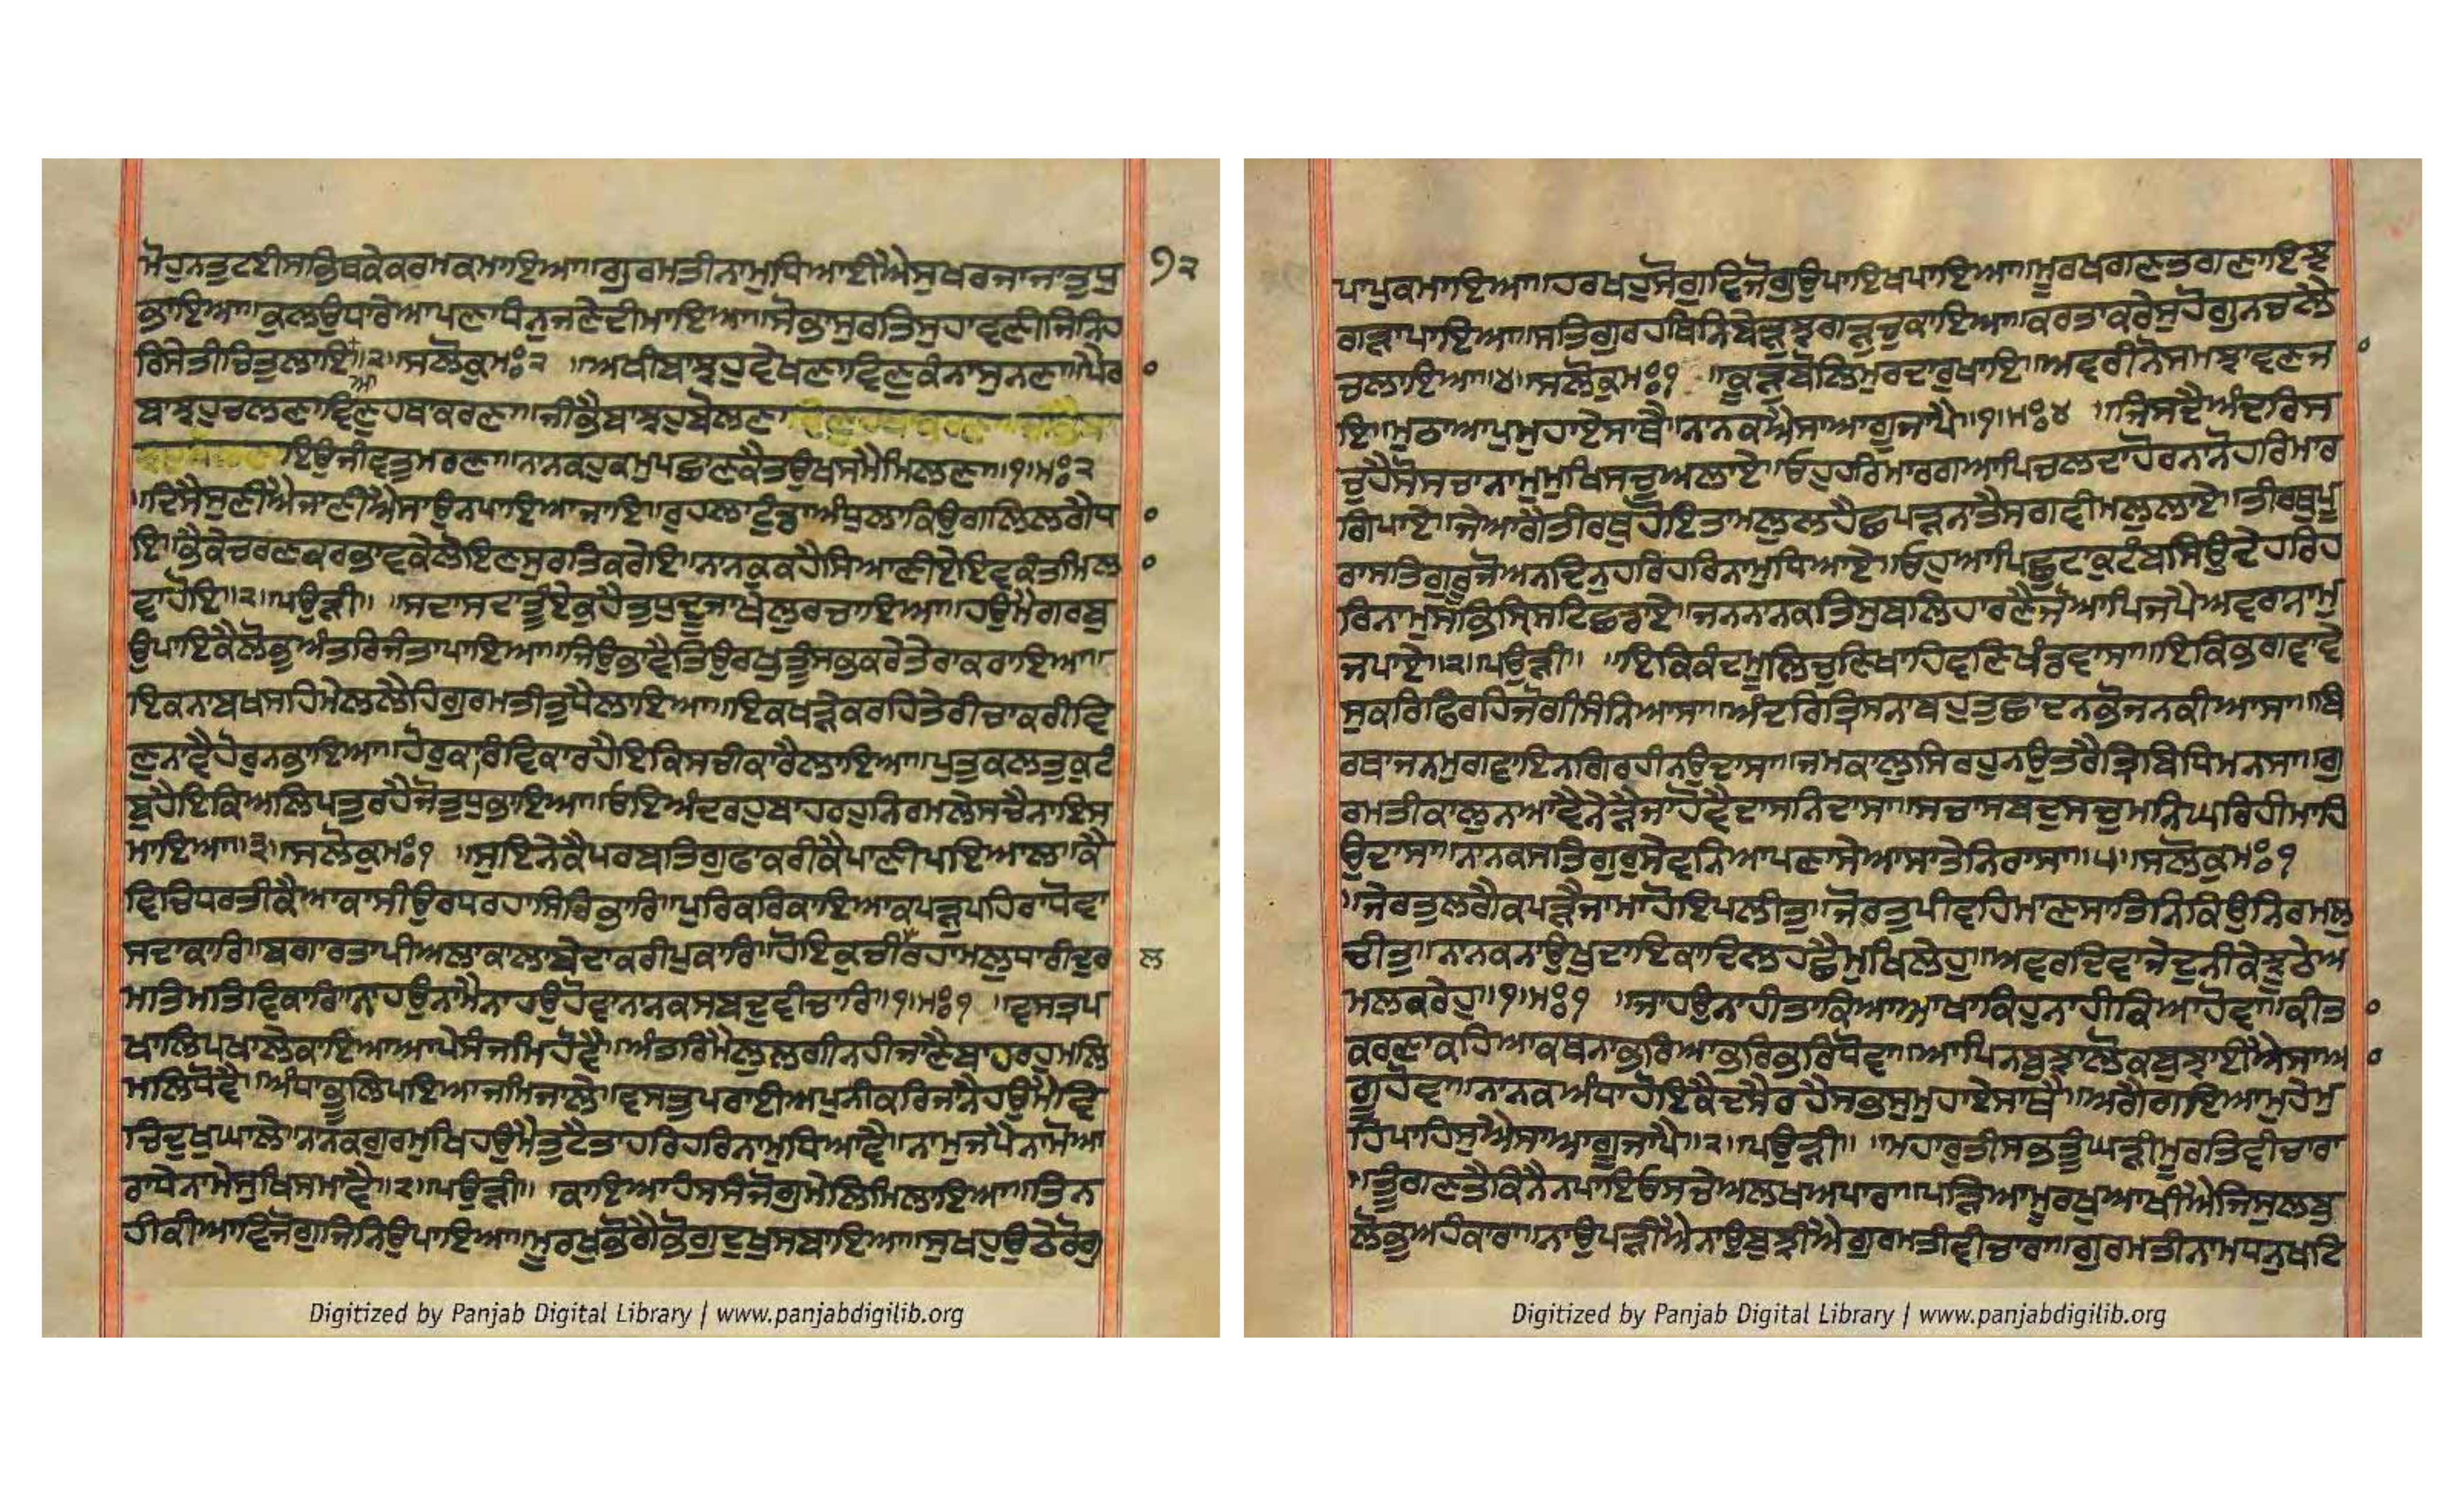 ਮੋਹੁਨਤੁਟਈਸਭਿਥਕੇਕਰਮਕਮਾਇਆ॥ਗੁਰਮਤੀਨਾਮੁਧਿਆਈਐਸੁਖਰਜਾਜਾਤੁਪ੍ਰ
੭੨
ਭਾਇਆ॥ਕੁਲੁਉਧਾਰੇਆਪਣਾਧੰਨੁਜਣੇਦੀਮਾਇਆ॥ਸੋਭਾਸੁਰਤਿਸੁਹਾਵਣੀਜਿਨਿਹ
ਰਿਸੇਤੀਚਿਤੁਲਾਇਆ॥੨॥ਸਲੋਕੁਮਃ੨ ॥ਅਖੀਬਾਝਹੁਵੇਖਣਾਵਿਣੁਕੰਨਾਸੁਨਣਾ॥ਪੈਰਾ
ਬਾਝਹੁਚਲਣਾਵਿਣੁਹਥਾਕਰਣਾ॥ਜੀਭੈਬਾਝਹੁਬੋਲਣਾ
ਇਉਜੀਵਤੁਮਰਣਾ॥ਨਾਨਕਹੁਕਮੁਪਛਾਣਕੈਤਉਖਸਮੈਮਿਲਣਾ॥੧॥ਮਃ੨
॥ਦਿਸੈਸੁਣੀਐਜਾਣੀਐਸਾਉਨਪਾਇਆਜਾਇ॥ਰੁਹਲਾਟੁੰਡਾਅੰਧੁਲਾਕਿਉਗਲਿਲਗੈਧਾ
ਇ॥ਭੈਕੇਚਰਣਕਰਭਾਵਕੇਲੋਇਣਸੁਰਤਿਕਰੇਇ॥ਨਾਨਕੁਕਹੈਸਿਆਣੀਏਇਵਕੰਤਮਿਲਾ
ਵਾਹੋਇ॥੨॥ਪਉੜੀ॥ ॥ਸਦਾਸਦਾਤੂੰਏਕੁਹੈਤੁਧੁਦੂਜਾਖੇਲੁਰਚਾਇਆ॥ਹਉਮੈਗਰਬੁ
ਉਪਾਇਕੈਲੋਭੁਅੰਤਰਿਜੰਤਾਪਾਇਆ॥ਜਿਉਭਾਵੈਤਿਉਰਖੁਤੂਸਭਕਰੇਤੇਰਾਕਰਾਇਆ॥
ਇਕਨਾਬਖਸਹਿਮੇਲਲੈਹਿਗੁਰਮਤੀਤੁਧੈਲਾਇਆ॥ਇਕਖੜੇਕਰਹਿਤੇਰੀਚਾਕਰੀਵਿ
ਣੁਨਾਵੈਹੋਰੁਨਭਾਇਆ॥ਹੋਰੁਕਾਰਵੇਕਾਰਹੈਇਕਿਸਚੀਕਾਰੈਲਾਇਆ॥ਪੁਤੁਕਲਤੁਕੁਟੰ
ਬੁਹੈਇਕਿਅਲਿਪਤੁਰਹੈਜੋਤੁਧੁਭਾਇਆ॥ਓਇਅੰਦਰਹੁਬਾਹਰਹੁਨਿਰਮਲੇਸਚੈਨਾਇਸ
ਮਾਇਆ॥੩॥ਸਲੋਕੁਮਃ੧ ॥ਸੁਇਨੇਕੈਪਰਬਤਿਗੁਫਾਕਰੀਕੈਪਾਣੀਪਇਆਲਾਕੈ
ਵਿਚਿਧਰਤੀਕੈਆਕਾਸੀਉਰਧਰਹਾਸਿਰਿਭਾਰਿ॥ਪੁਰਿਕਰਿਕਾਇਆਕਪੜੁਪਹਿਰਾਧੋਵਾ
ਸਦਾਕਾਰਿ॥ਬਗਾਰਤਾਪੀਅਲਾਕਾਲਾਬੇਦਾਕਰੀਪੁਕਾਰਿ॥ਹੋਇਕੁਚੀਲੁਰਹਾਮਲੁਧਾਰੀਦੁਰ
ਲ
ਮਤਿਮਤਿਵਿਕਾਰਿ॥ਨਾਹਉਨਾਮੈਨਾਹਉਹੋਵਾਨਾਨਕਸਬਦੁਵੀਚਾਰਿ॥੧॥ਮਃ੧ ॥ਵਸਤ੍ਰਪ
ਖਾਲਿਪਖਾਲੇਕਾਇਆਆਪੇਸੰਜਮਿਹੋਵੈ॥ਅੰਤਰਿਮੈਲੁਲਗੀਨਹੀਜਾਣੈਬਾਹਰਹੁਮਲਿ
ਮਲਿਧੋਵੈ॥ਅੰਧਾਭੂਲਿਪਇਆਜਮਜਾਲੇ॥ਵਸਤੁਪਰਾਈਅਪੁਨੀਕਰਿਜਾਨੈਹਉਮੈਵਿ
ਚਿਦੁਖੁਘਾਲੇ॥ਨਾਨਕਗੁਰਮੁਖਿਹਉਮੈਤੁਟੈਤਾਹਰਿਹਰਿਨਾਮੁਧਿਆਵੈ॥ਨਾਮੁਜਪੇਨਾਮੋਆ
ਰਾਧੇਨਾਮੇਸੁਖਿਸਮਾਵੈ॥੨॥ਪਉੜੀ॥ ॥ਕਾਇਆਹੰਸਿਸੰਜੋਗੁਮੇਲਿਮਿਲਾਇਆ॥ਤਿਨ
ਹੀਕੀਆਵਿਜੋਗੁਜਿਨਿਉਪਾਇਆ॥ਮੂਰਖੁਭੋਗੇਭੋਗੁਦੁਖਸਬਾਇਆ॥ਸੁਖਹੁਉਠੇਰੋਗ
ਪਾਪਕਮਾਇਆ॥ਹਰਖਹੁਸੋਗੁਵਿਜੋਗੁਉਪਾਇਖਪਾਇਆ॥ਮੂਰਖਗਣਤਗਣਾਇਝ
ਗੜਾਪਾਇਆ॥ਸਤਿਗੁਰਹਥਿਨਿਬੇੜੁਝਗੜੁਚੁਕਾਇਆ॥ਕਰਤਾਕਰੇਸੁਹੋਗੁਨਚਲੈ
ਚਲਾਇਆ॥੪॥ਸਲੋਕੁਮਃ੧ ॥ਕੂੜੁਬੋਲਿਮੁਰਦਾਰੁਖਾਇ॥ਅਵਰੀਨੋਸਮਝਾਵਣਿਜਾ
ਇ॥ਮੁਠਾਆਪੁਮੁਹਾਏਸਾਥੈ॥ਨਾਨਕਐਸਾਆਗੂਜਾਪੈ॥੧॥ਮਃ੪ ॥ਜਿਸਦੈਅੰਦਰਿਸ
ਚੁਹੈਸੋਸਚਾਨਾਮੁਮੁਖਿਸਚੁਅਲਾਏ॥ਓਹੁਹਰਿਮਾਰਗਆਪਿਚਲਦਾਹੋਰਨਾਨੋਹਰਿਮਾਰ
ਗਿਪਾਏ॥ਜੇਆਗੈਤੀਰਥੁਹੋਇਤਾਮਲੁਲਹੈਛਪੜਿਨਾਤੈਸਗਵੀਮਲੁਲਾਏ॥ਤੀਰਥੁਪੂ
ਰਾਸਤਿਗੁਰੂਜੋਅਨਦਿਨੁਹਰਿਹਰਿਨਾਮੁਧਿਆਏ॥ਓਹੁਆਪਿਛੁਟਾਕੁਟੰਬਸਿਉਦੇਹਰਿਹ
ਰਿਨਾਮੁਸਭਸ੍ਰਿਸਟਿਛਡਾਏ॥ਜਨਨਾਨਕਤਿਸੁਬਲਿਹਾਰਣੈਜੋਆਪਿਜਪੈਅਵਰਾਨਾਮੁ
ਜਪਾਏ॥੨॥ਪਉੜੀ॥ ॥ਇਕਿਕੰਦਮੂਲਿਚੁਣਿਖਾਹਿਵਣਿਖੰਡਵਾਸਾ॥ਇਕਿਭਗਵਾਵੇ
ਸੁਕਰਿਫਿਰਹਿਜੋਗੀਸੰਨਿਆਸਾ॥ਅੰਦਰਿਤ੍ਰਿਸਨਾਬਹੁਤੁਛਾਦਨਭੋਜਨਕੀਆਸਾ॥ਬਿ
ਰਥਾਜਨਮੁਗਵਾਇਨਗਿਰਹੀਨਉਦਾਸਾ॥ਜਮਕਾਲੁਸਿਰਹੁਨਉਤਰੈਤ੍ਰਿਬਿਧਿਮਨਸਾ॥ਗੁ
ਰਮਤੀਕਾਲੁਨਆਵੈਨੇੜੈਜਾਹੋਵੈਦਾਸਨਿਦਾਸਾ॥ਸਚਾਸਬਦੁਸਚੁਮਨਿਘਰਿਹੀਮਾਹਿ
ਉਦਾਸਾ॥ਨਾਨਕਸਤਿਗੁਰੁਸੇਵਨਿਆਪਣਾਸੇਆਸਾਤੇਨਿਰਾਸਾ॥੫॥ਸਲੋਕੁਮਃ੧
॥ਜੇਰਤੁਲਗੈਕਪੜੈਜਾਮਾਹੋਇਪਲੀਤੁ॥ਜੋਰਤੁਪੀਵਹਿਮਾਣਸਾਤਿਨਕਿਉਨਿਰਮਲੁ
ਚੀਤੁ॥ਨਾਨਕਨਾਉਖੁਦਾਇਕਾਦਿਲਹਛੈਮੁਖਿਲੇਹੁ॥ਅਵਰਦਿਵਾਜੇਦੁਨੀਕੇਝੂਠੇਅ
ਮਲਕਰੇਹੁ॥੧॥ਮਃ੧ ॥ਜਾਹਉਨਾਹੀਤਾਕਿਆਆਖਾਕਿਹੁਨਾਹੀਕਿਆਹੋਵਾ॥ਕੀਤਾ
ਕਰਣਾਕਹਿਆਕਥਨਾਭਰਿਆਭਰਿਭਰਿਧੋਵਾ॥ਆਪਿਨਬੁਝਾਲੋਕਬੁਝਾਈਐਸਾਆ
ਗੂਹੋਵਾ॥ਨਾਨਕਅੰਧਾਹੋਇਕੈਦਸੈਰਾਹੈਸਭਸੁਮੁਹਾਏਸਾਥੈ॥ਅਗੈਗਇਆਮੁਹੇਮੁ
ਹਿਪਾਹਿਸੁਐਸਾਆਗੂਜਾਪੈ॥੨॥ਪਉੜੀ॥ ॥ਮਾਹਾਰੁਤੀਸਭਤੂੰਘੜੀਮੂਰਤਿਵੀਚਾਰਾ
॥ਤੂੰਗਣਤੈਕਿਨੈਨਪਾਇਓਸਚੇਅਲਖਅਪਾਰਾ॥ਪੜਿਆਮੂਰਖੁਆਖੀਐਜਿਸੁਲਬੁ
ਲੋਭੁਅਹੰਕਾਰਾ॥ਨਾਉਪੜੀਐਨਾਉਬੁਝੀਐਗੁਰਮਤੀਵੀਚਾਰਾ॥ਗੁਰਮਤੀਨਾਮਧਨੁਖਟਿ
Digitized by Panjab Digital Library | www.panjabdigilib.org
Digitized by Panjab Digital Library | www.panjabdigilib.org